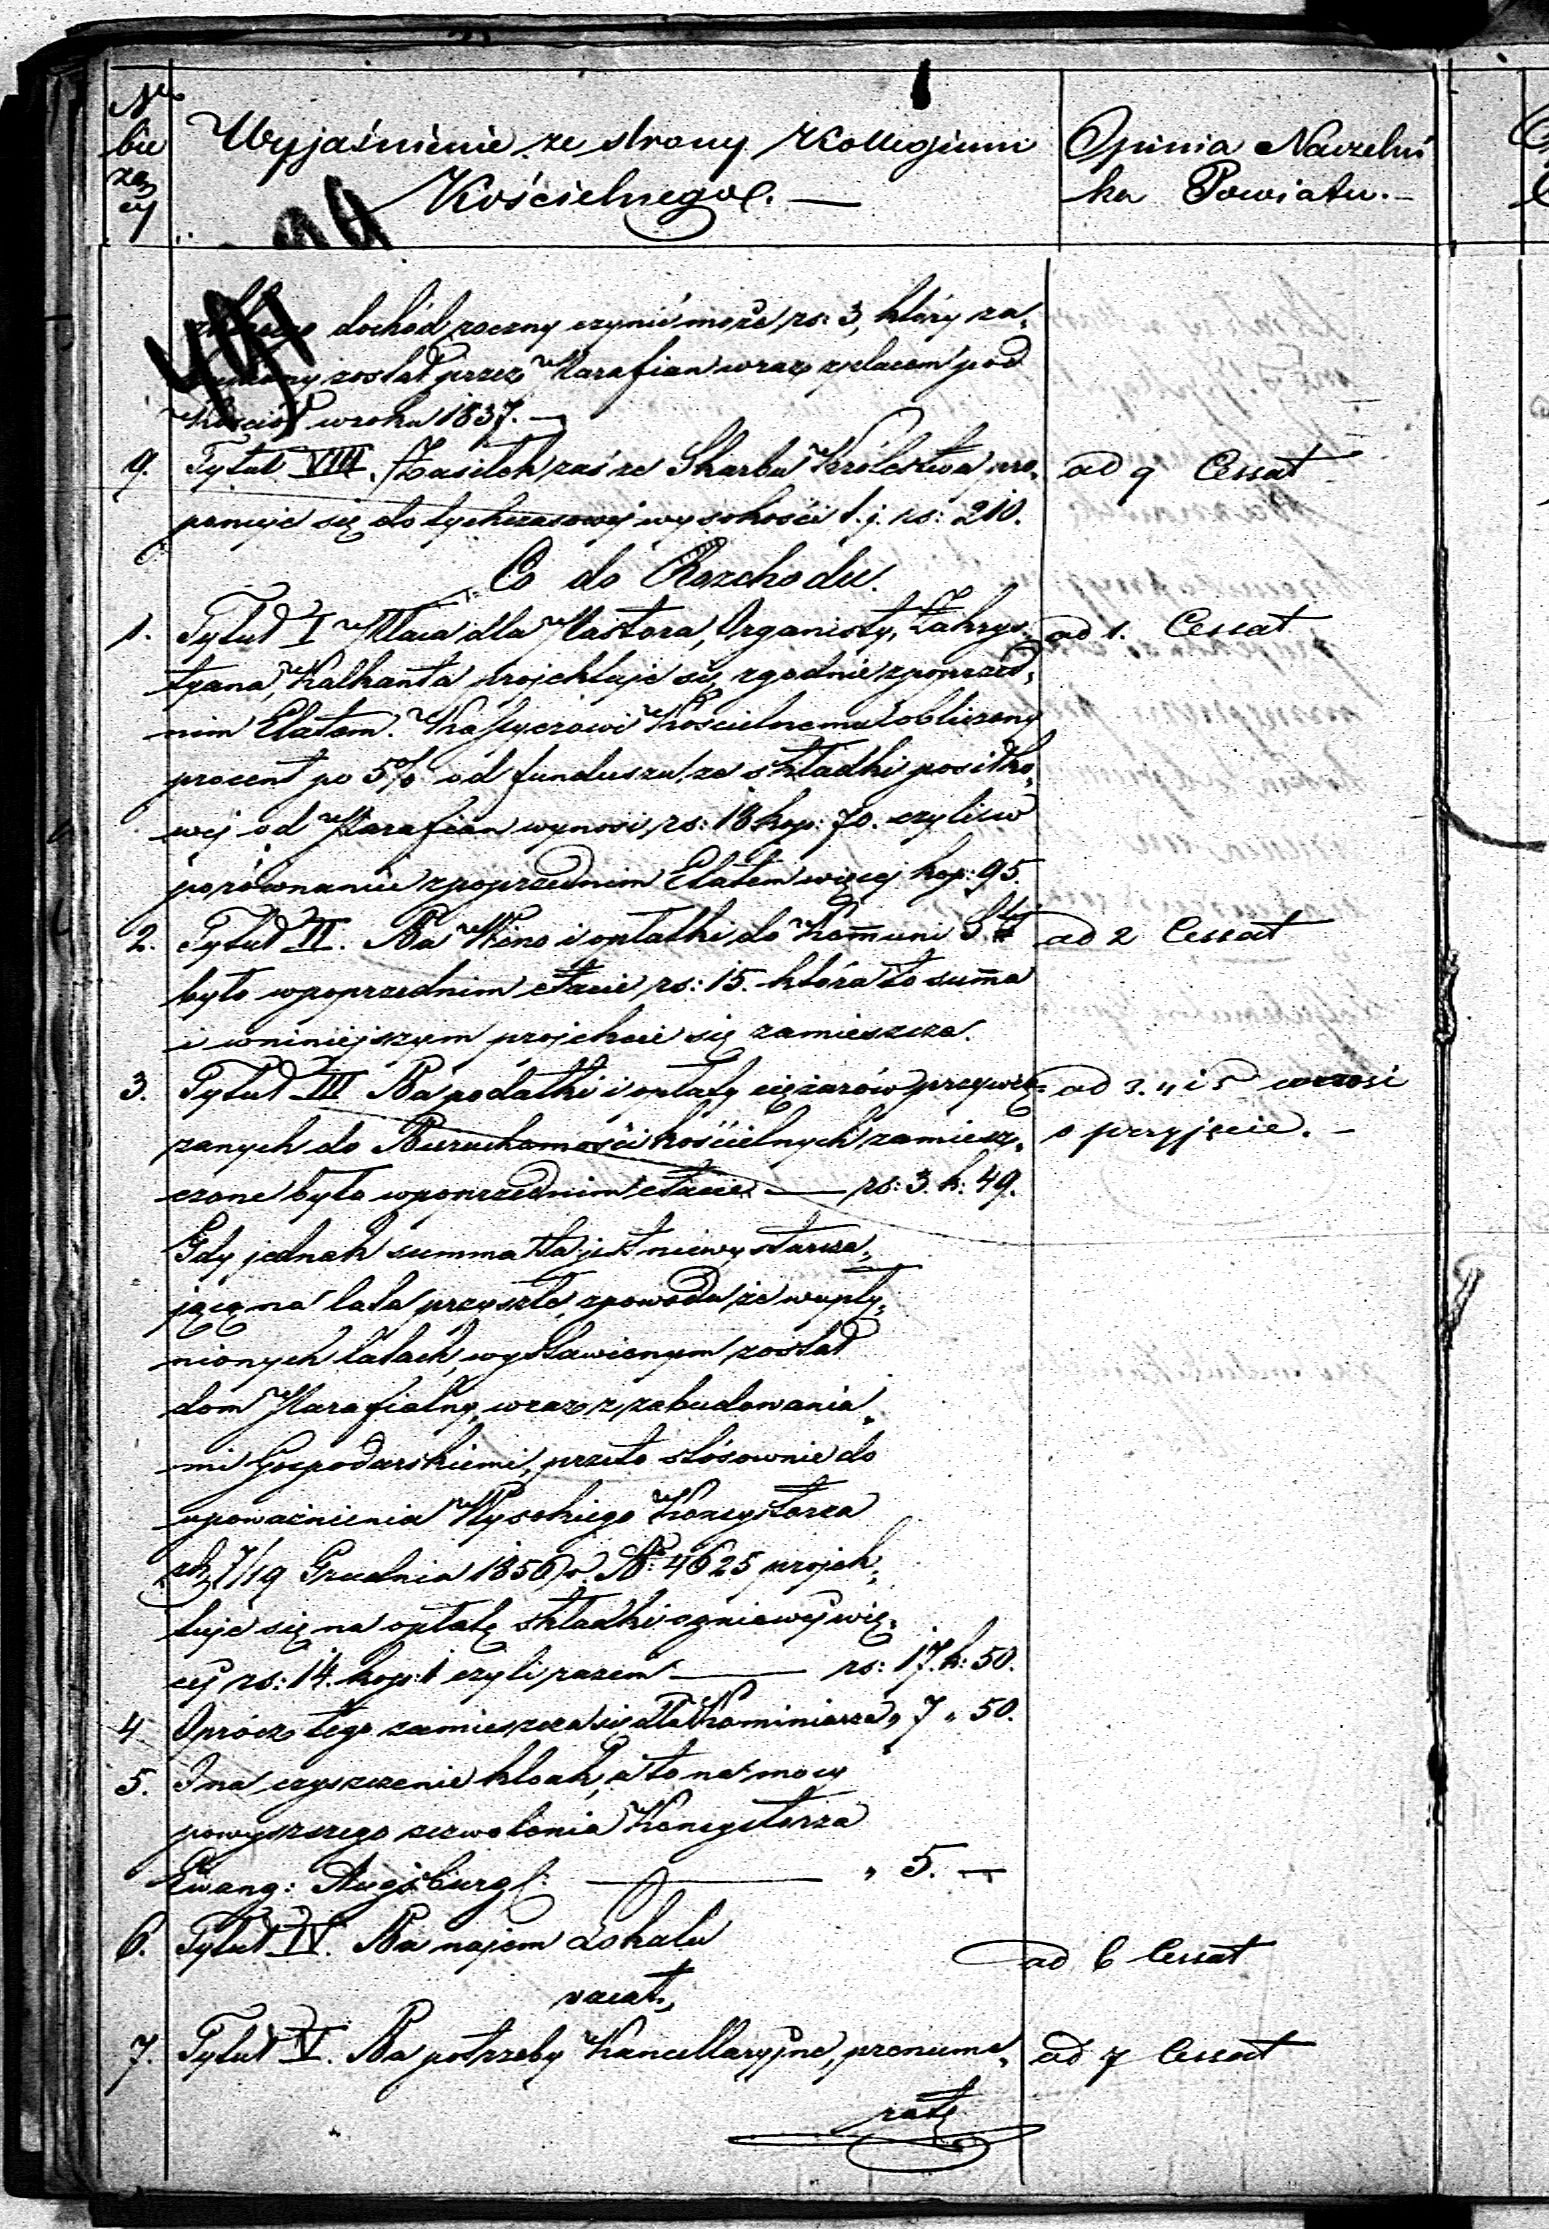 No
bie
żą
cy
Wyjaśnienie ze strony Kollegium
Kościelnego. —
Opinia Naczelni
ka Powiatu. —
dochód roczny czynić może rs: 3, który za„
został przez Parafian wraz z placem pod
Kościół w roku 1837. —
9. Tytuł VIII. Zasiłek zaś ze Skarbu Królestwa pro„
ponuje się do tychczasowej wysokości t. j. rs: 210.
ad 9 Cessat
Co do Rozchodu.
1. Tytuł I Płaca dla Pastora, Organisty, Zakrys„
tyana, Kalkanta projektuje się zgodnie z poprzed„
nim Etatem. Kassyerowi Kościelnemu obliczony
procent po 5% od funduszu, ze składki posiłko„
wej od Parafian wynosi, rs: 18 kop: 70. czyli w
porównaniu z poprzednim Etatem więcej kop: 95.
ad 1. Cessat
2. Tytuł II. Na Wino i opłatki do Kommuni Stej
było w poprzednim etacie rs: 15. która to summa
i w niniejszym projekcie się zamieszcza.
ad 2 Cessat
3. Tytuł III Na podatki i opłaty ciężarów przywią„
zanych do Nieruchomości kościelnych zamiesz„
czone było w poprzednim etacie — rs: 3. k: 49.
ad 3. 4 i 5 wnosi
o przyjęcie. —
Gdy jednak summa ta jest niewystarcza„
jącą na lata przyszłe, z powodu że w upły„
nionych latach, wystawionym został
dom Parafialny, wraz z zabudowania„
mi Gospodarskiemi, przeto stósownie do
upoważnienia Wysokiego Konsystorza
z d. 7/19 Grudnia 1856 r. No 4625 projek„
tuje się na opłatę składki ogniowej wię„
cej rs: 14. kop: 1 czyli razem — rs: 17. k: 50.
4 Oprócz tego zamieszcza się dla Kominiarza „ 7 „ 50.
5. I na czyszczenie kloak, a to na mocy
powyższego zezwolenia Konsystorza
Ewang: Augsburg: — „ 5. —
6. Tytuł IV. Na najem Lokalu
vacat„
ad 6 Cessat
7. Tytuł V. Na potrzeby Kancellaryjne, prenume„
ratę
ad 7 Cessat